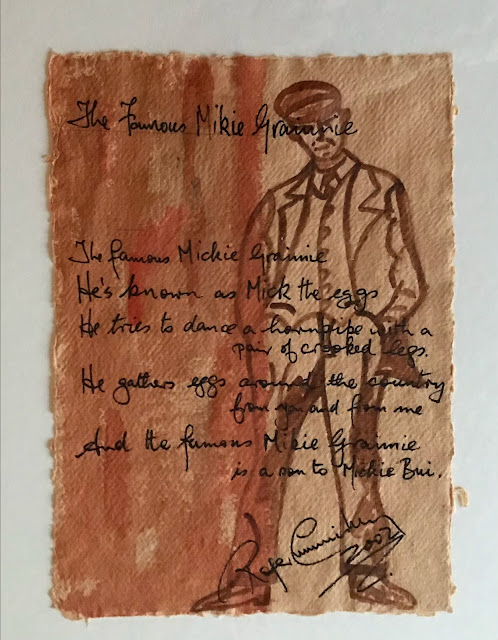 The Famous Mikie Grainnie
The famous Mickie Grainnie
He's known as Mick the eggs
He tries to dance a hornpipe with a
pair of crooked legs.
He gathers eggs around the country
from you and from me
And the famous Mikie Grainnie
is a son to Mickie Bui.
2002